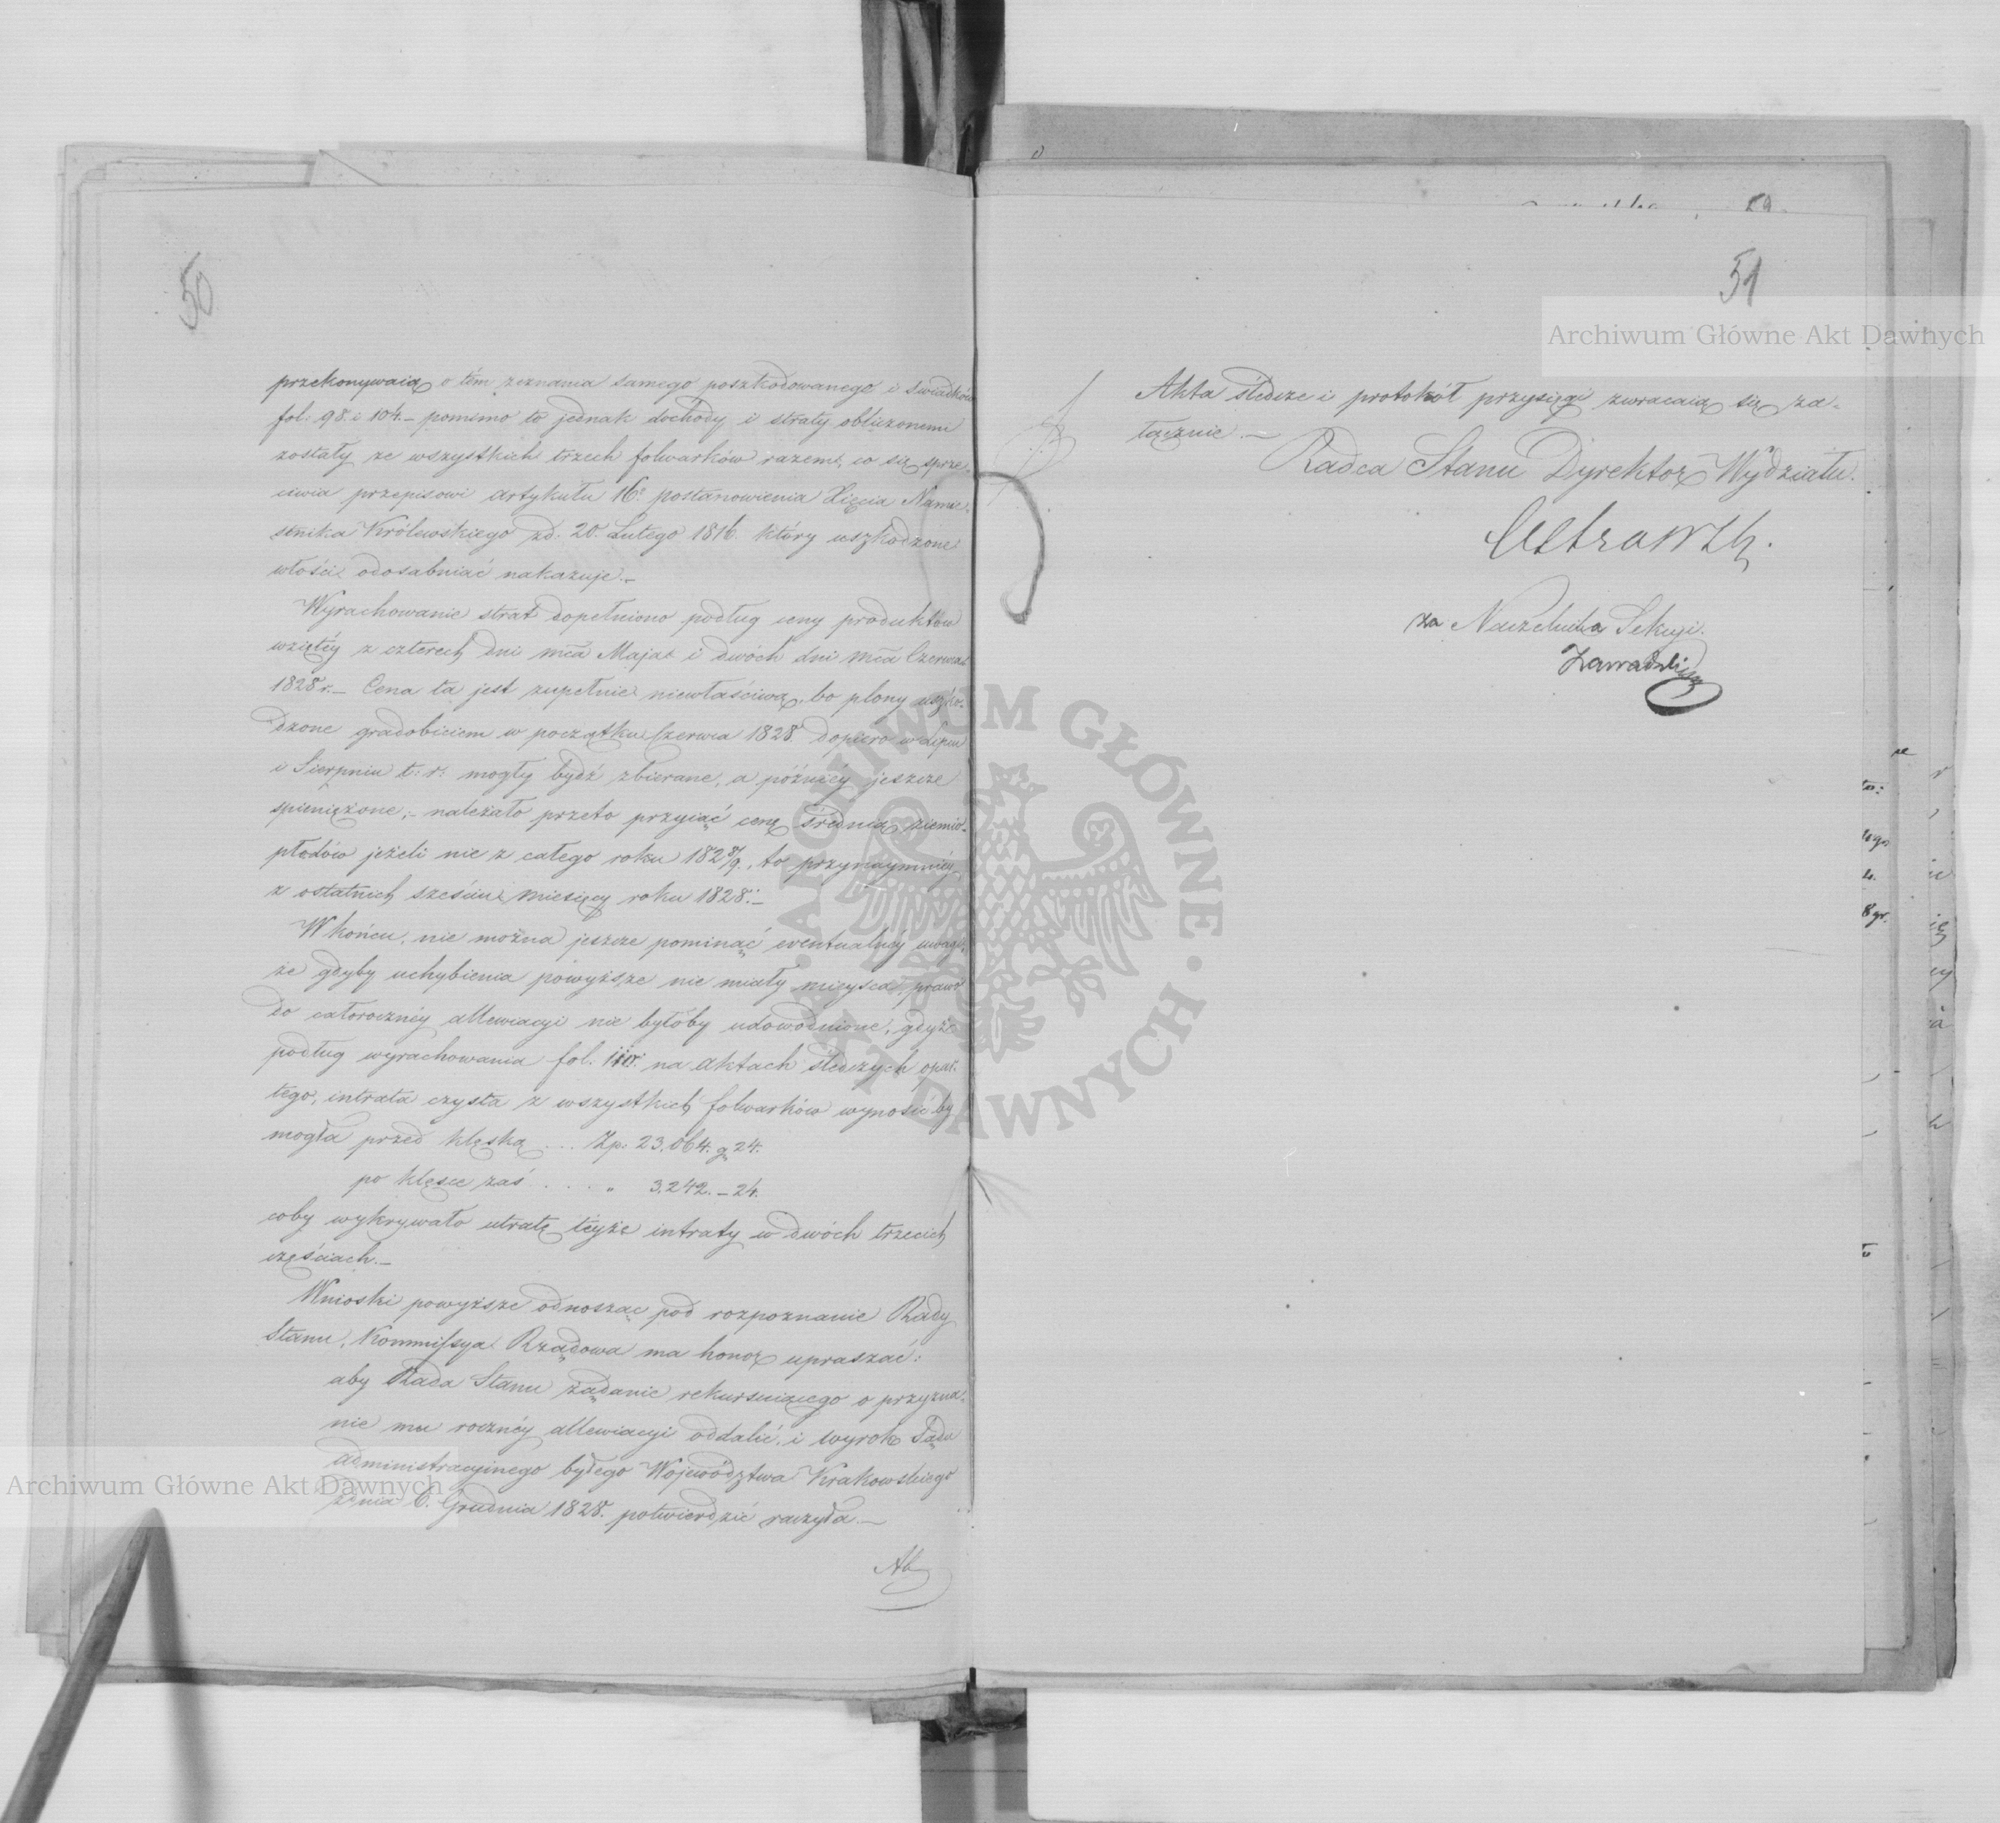 50
przekonywaią o tém zeznania samego poszkodowanego i swiadków
fol: 98. i 104. – pomimo to jednak dochody i straty obliczonemi
zostały ze wszystkich trzech folwarków razem, co się sprze-
ciwia przepisowi artykułu 16º postanowienia Xięcia Namie-
stnika Królewskiego zd. 20. Lutego 1816. który uszkodzone
włości odosabniać nakazuje. –
Wyrachowanie strat dopełniono podług ceny produktów
wziętéy z czterech dni mca Maja i dwóch dni mca Czerwca
1828 r. – Cena ta jest zupełnie niewłaściwą, bo plony uszko-
dzone gradobiciem w początku Czerwca 1828. dopiero w Lipcu
i Sierpniu t: r: mogły bydź zbierane, a późniéy jeszcze
spieniężone; – należało przeto przyiąć cenę średnią ziemio-
płodów jeżeli nie z całego roku 1828/9., to przynaymniéy
z ostatnich sześciu miesięcy roku 1828. –
W końcu, nie można jeszcze pominąć ewentualnéy uwagi,
że gdyby uchybienia powyższe nie miały mieysca, prawo
do całorocznéy allewiacyi nie byłoby udowodnione, gdyż
podług wyrachowania fol. 110. na aktach śledczych opar-
tego, intrata czysta z wszystkich folwarków wynosić by
mogła przed klęską ... Zp: 23,064. g 24.
po klęsce zaś . . . . „ 3,242. – 24.
coby wykrywało utratę téyże intraty w dwóch trzecich
częściach. –
Wnioski powyższe odnosząc pod rozpoznanie Rady
Stanu, Kommissya Rządowa ma honor upraszać:
aby Rada Stanu żądanie rekursuiącego o przyzna-
nie mu rocznéy allewiacyi oddalić, i wyrok Sądu
administracyinego byłego Województwa Krakowskiego
zdnia 6. Grudnia 1828. potwierdzić raczyła. –
51
Akta śledcze i protokół przysięgi zwracaią się za-
łącznie. –
Radca Stanu Dyrektor Wydziału.
za Naczelnika Sekcyi.
Zawadzki
Archiwum Główne Akt Dawnych
Archiwum Główne Akt Dawnych
ARCHIWUM GŁÓWNE AKT DAWNYCH